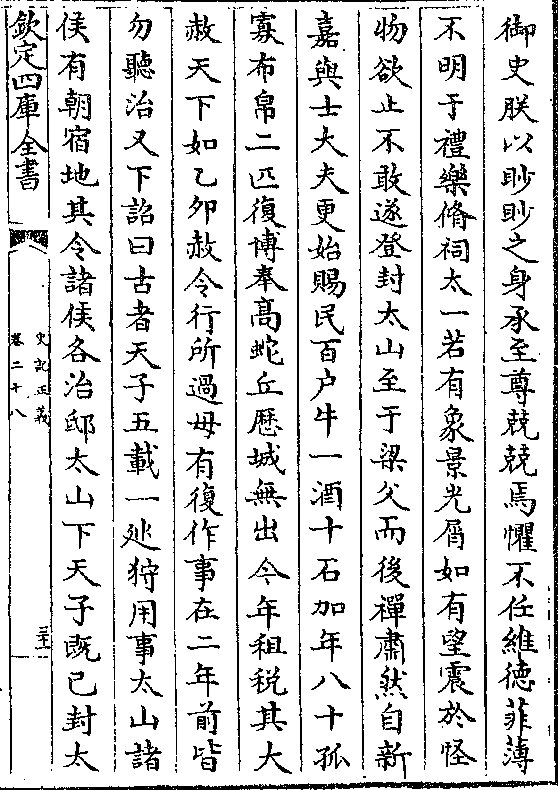 御史朕以眇眇之身承至尊兢兢焉懼不任維德菲薄
不明于禮樂脩祠太一若有象景光屑如有望震於怪
物欲止不敢遂登封太山至于梁父而後禪肅然自新
嘉與士大夫更始賜民百户牛一酒十石加年八十孤
寡布帛二匹復博奉高蛇丘歷城無出今年租税其大
赦天下如乙卯赦令行所過毋有復作事在二年前皆
勿聽治又下詔曰古者天子五載一廵狩用事太山諸
侯有朝宿地其令諸侯各治邸太山下天子既已封太
欽定四庫全書
史記正義
卷二十八
三十一